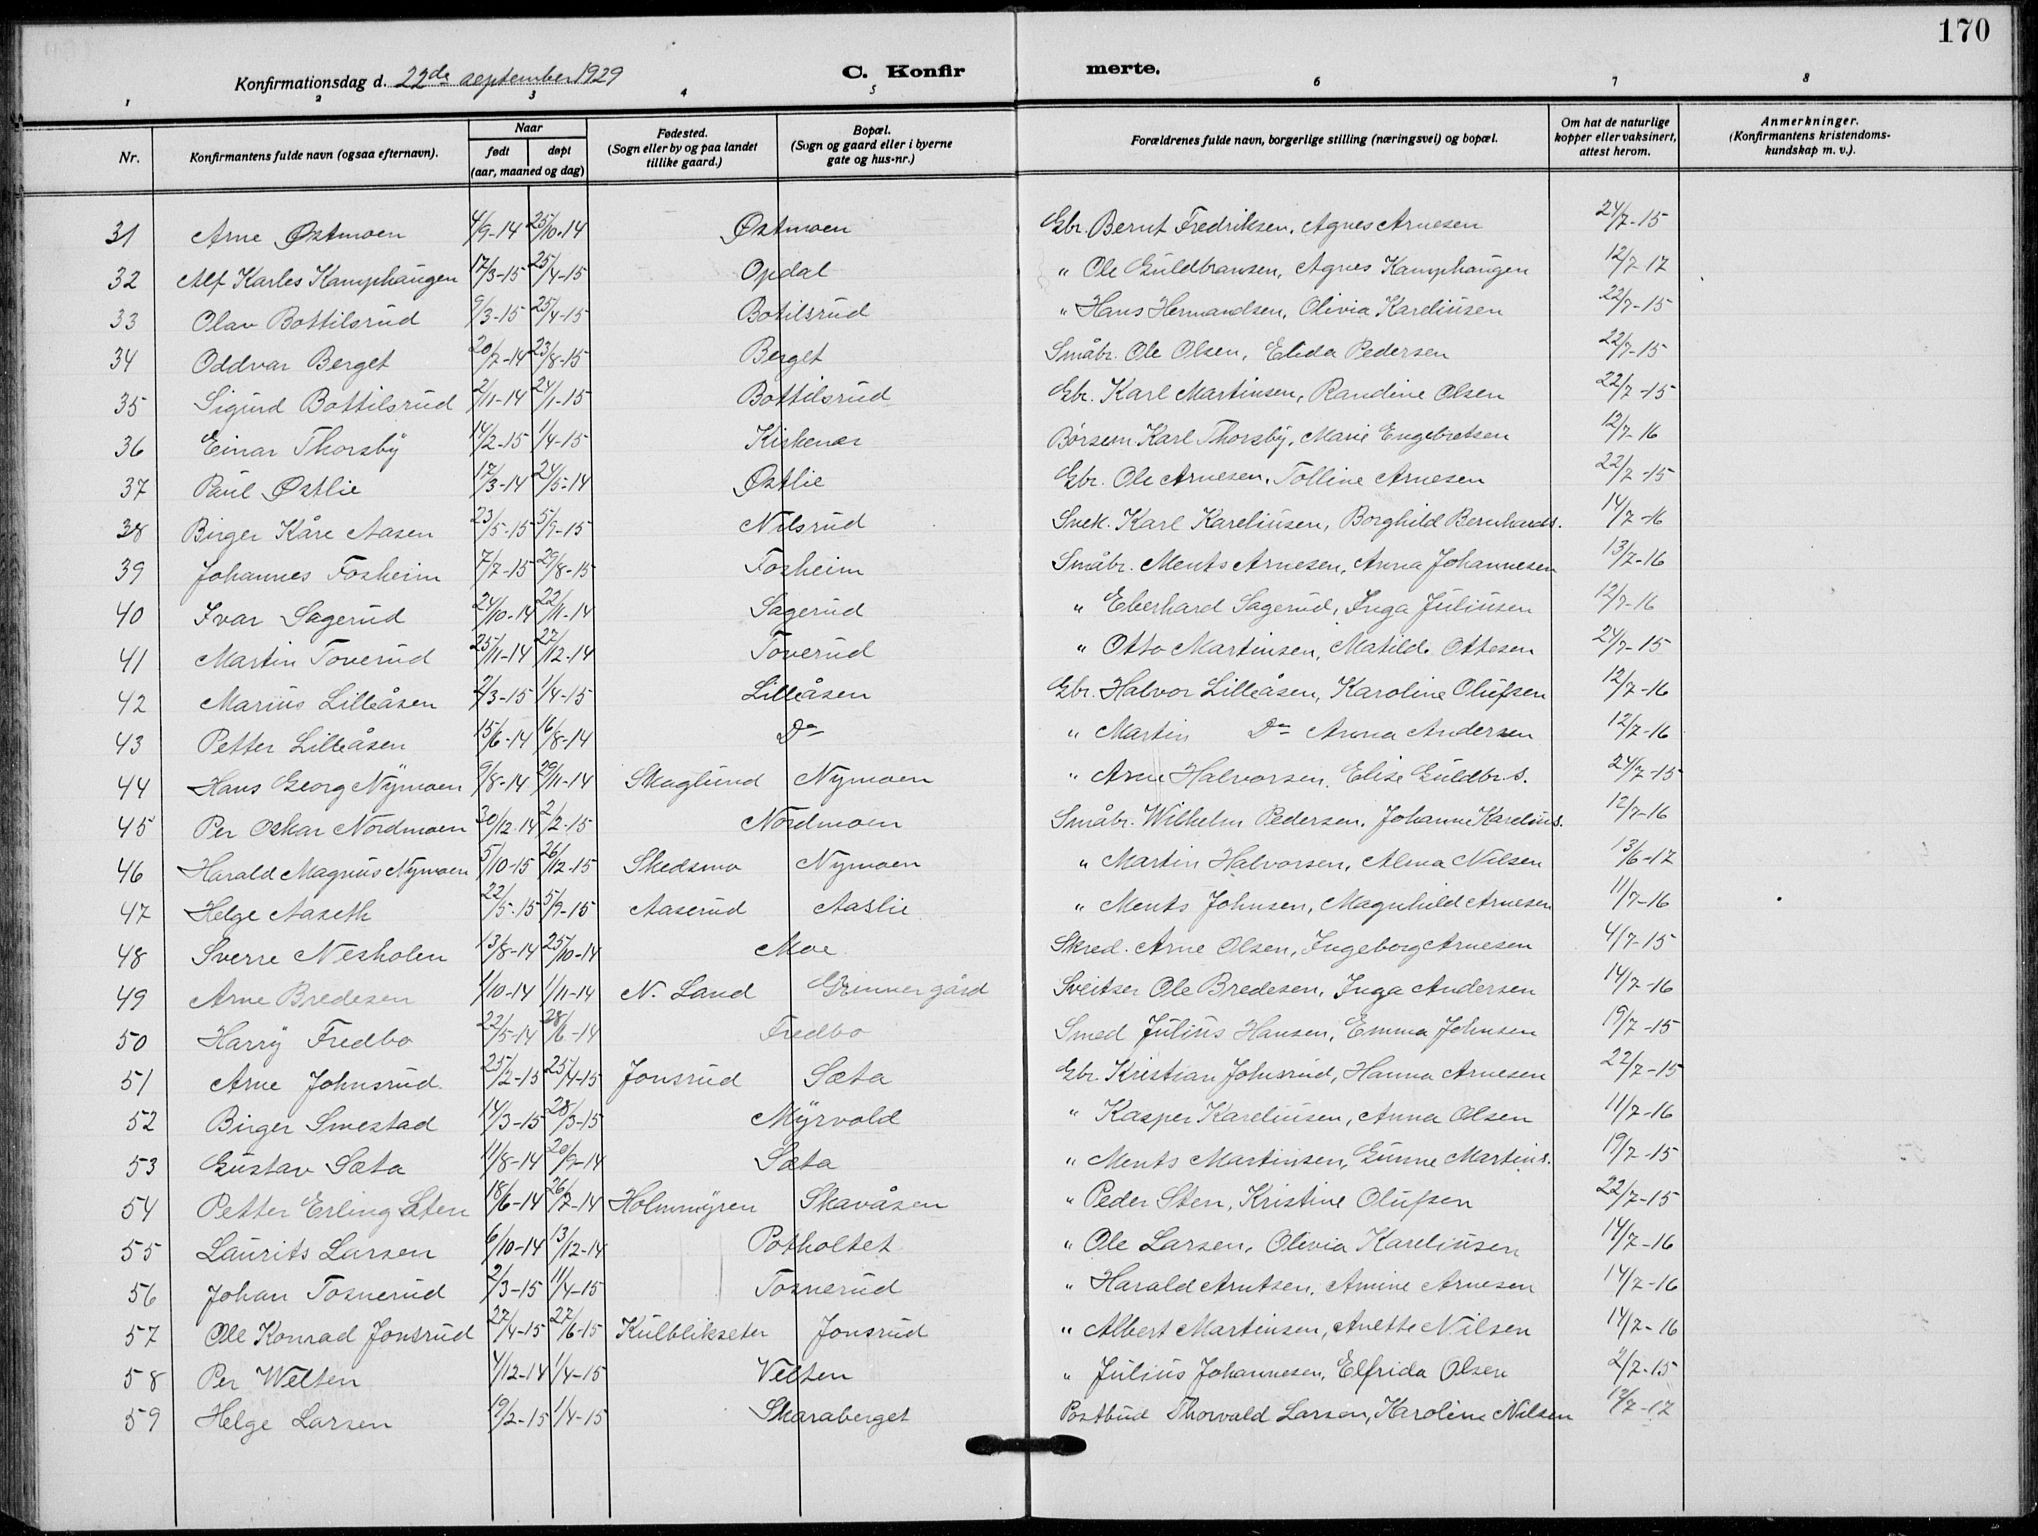 170
Konfirmationsdag d. 22de september 1929 C. Konfir merte.
1 2 3 4 5 6 7 8
Nr. Konfirmantens fulde navn (ogsaa efternavn). Naar født døpt (aar, maaned og dag) Fødested. (Sogn eller by og paa landet tillike gaard.) Bopæl. (Sogn og gaard eller i byerne gate og hus-nr.) Forældrenes fulde navn, borgerlige stilling (næringsvei) og bopæl. Om hat de naturlige kopper eller vaksinert, attest herom. Anmerkninger. (Konfirmantens kristendoms-kundskap m. v.).
31 Arne Østmoen 4/9-14 25/10-14 Østmoen Gbr. Bernt Fredriksen, Agnes Arnesen 24/7-15
32 Alf Karles Kamphaugen 17/3-15 25/4-15 Opdal " Ole Guldbransen, Agnes Kamphaugen 12/7-17
33 Olav Bottilsrud 9/3-15 25/4-15 Botilsrud " Hans Hermandsen, Olivia Kareliusen 22/7-15
34 Oddvar Berget 20/7-14 23/8-15 Berget Småbr. Ole Olsen, Elida Pedersen 22/7-15
35 Sigurd Bottilsrud 2/11-14 24/1-15 Bottilsrud Gbr. Karl Martinsen, Randine Olsen 22/7-15
36 Einar Thorsby 14/2-15 1/4-15 Kiskener Børsem. Karl Thorsby, Marie Engebretsen 12/7-16
37 Paul Østlie 17/3-14 24/5-14 Østlie Gbr. Ole Arnesen, Tolline Arnesen 22/7-15
38 Birger Kåre Aasen 23/5-15 5/9-15 Nilsrud Snek. Karl Kareliusen, Borghild Bernhards. 14/7-16
39 Johannes Fosheim 7/7-15 29/8-15 Fosheim Småbr. Ments Arnesen, Anna Johannesen 13/7-16
40 Ivar Sagerud 24/10-14 22/11-14 Sagerud " Eberhard Sagerud, Inga Juliusen 12/7-16
41 Martin Toverud 25/11-14 27/12-14 Toverud " Otto Martinsen, Matilde Ottesen 24/7-15
42 Marius Lilleåsen 2/3-15 1/4-15 Lilleåsen Gbr. Halvor Lilleåsen, Karoline Olufsen 12/7-16
43 Petter Lilleåsen 15/6-14 16/8-14 Do " Martin Do Anna Andersen 12/7-16
44 Hans Georg Nymoen 9/8-14 29/11-14 Skaglund Nymoen " Arne Halvorsen, Elise Guldbr.s. 24/7-15
45 Per Oskar Nordmoen 30/12-14 2/2-15 Nordmoen Småbr. Wilhelm Pedersen, Johanne Karelius. 12/7-16
46 Harald Magnus Nymoen 5/10-15 26/12-15 Skedsmo Nymoen " Martin Halvorsen, Alma Nilsen 13/6-17
47 Helge Aaseth 22/5-15 5/9-15 Aaserud Aaslie " Ments Johnsen, Magnhild Arnesen 11/7-16
48 Sverre Nesholen 13/8-14 25/10-14 Moe Skred. Arne Olsen, Ingeborg Arnesen 4/7-15
49 Arne Bredesen 1/10-14 1/11-14 N. Land Grinnergård Sveitser Ole Bredesen, Inga Andersen 14/7-16
50 Harry Fredbo 22/5-14 28/6-14 Fredbo Smed Julius Hansen, Emma Johnsen 19/7-15
51 Arne Johnsrud 25/2-15 25/4-15 Jonsrud Sæta Gbr. Kristian Johnsrud, Hanna Arnesen 22/7-15
52 Birger Smestad 14/3-15 28/3-15 Myrvold " Kasper Kareliusen, Anna Olsen 11/7-16
53 Gustav Sæta 11/8-14 20/9-14 Sæta " Ments Martinsen, Gunne Martins. 19/7-15
54 Petter Erling Sten 18/6-14 26/7-14 Holmmyren Skavåsen " Peder Sten, Kristine Olufsen 22/7-15
55 Laurits Larsen 6/10-14 13/12-14 Potholtet " Ole Larsen, Olivia Kareliusen 14/7-16
56 Johan Tosnerud 2/3-15 11/4-15 Tosnerud " Harald Arntsen, Amine Arnesen 14/7-16
57 Ole Konrad Jonsrud 27/4-15 27/6-15 Kulblikseter Jonsrud " Albert Martinsen, Anette Nilsen 14/7-16
58 Per Welten 4/12-14 1/4-15 Velten " Julius Johannesen, Elfrida Olsen 2/7-15
59 Helge Larsen 19/2-15 1/4-15 Skaraberget Postbud Thorvald Larsen, Karoline Nilsen 12/7-17